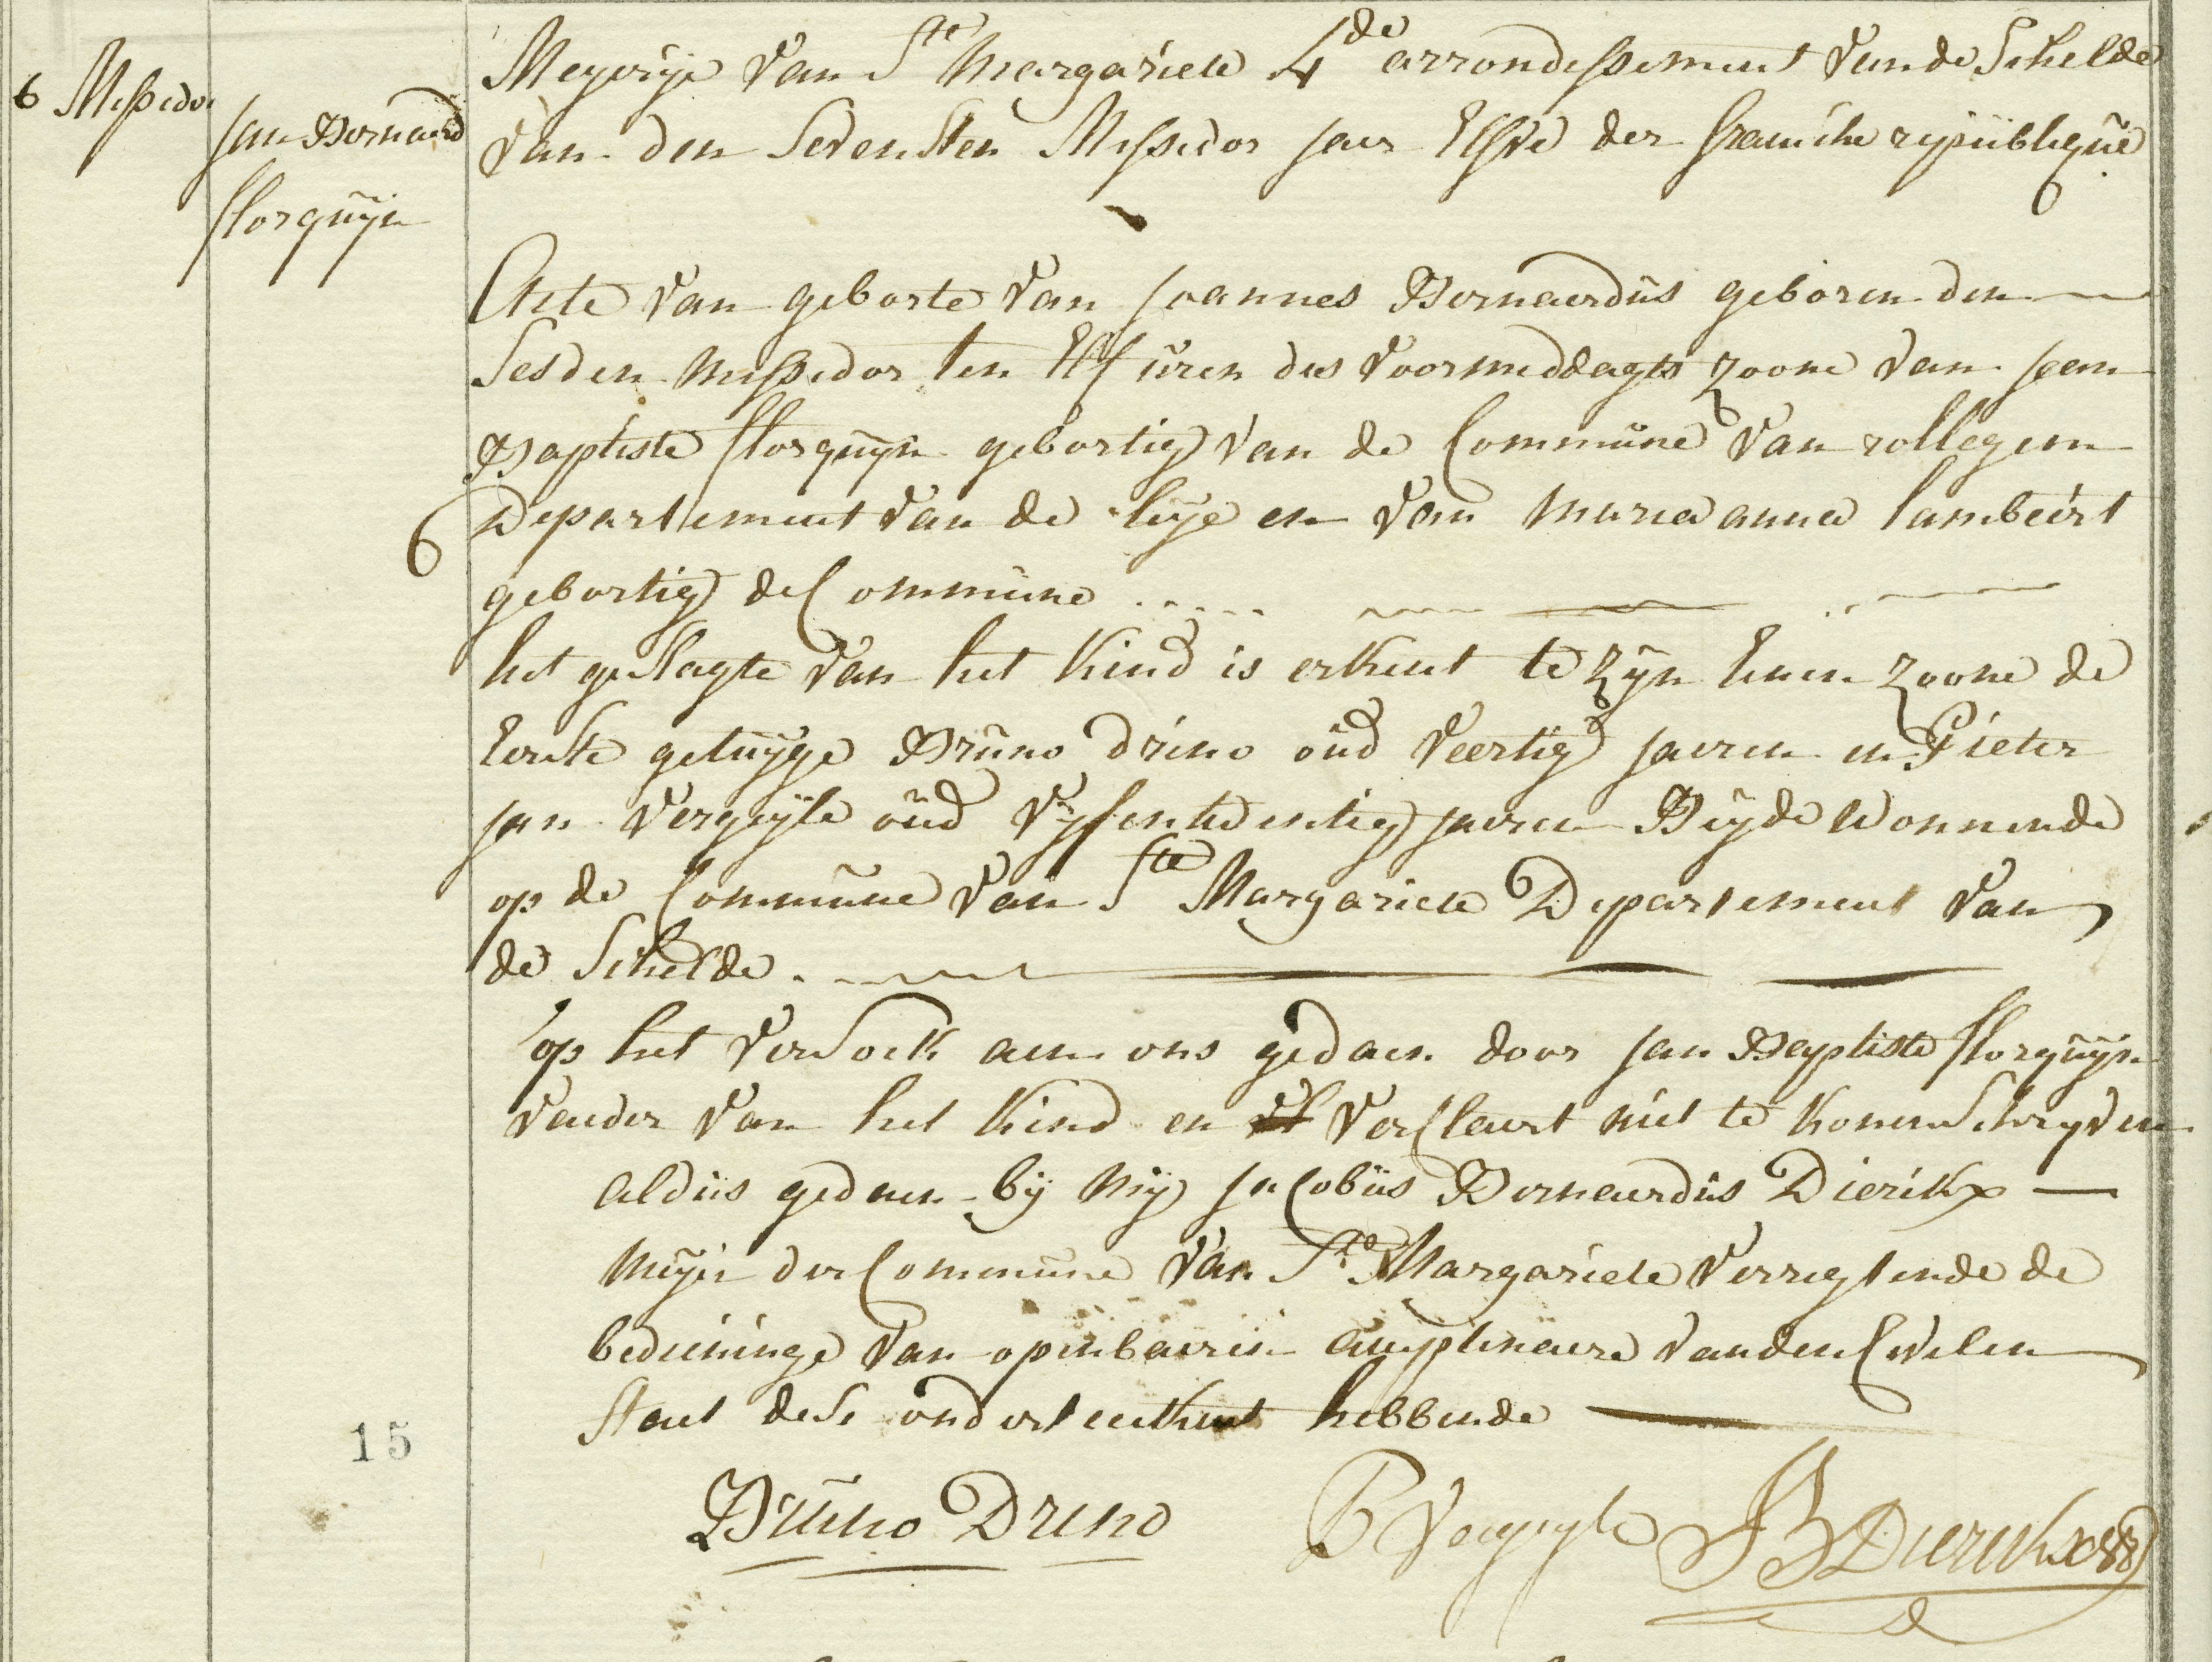 6 Messidor
Jan Bernaerd
florquijn
6
15
Meyerije van Ste Margariete 4de arrondissement van de Schelde
van den Sevensten Messidor Jaer Elfve der fransche republique
Acte van geborte van Joannes Bernaerdus geboren den
Sesden Messidor ten Elf uren des voormiddagts zoone van Jean
Baptiste florquijn gebortig van de Commune van rollegem
Departement van de leije en van maria anna lambeirt
gebortig de Commune
het geslagte van het Kind is erkent te zijn Eenen zoone de
Eerste getuijge Bruno drino oud veertig Jaeren en Pieter
Jan vergeijle oud vijfentwentig Jaeren Beijde wonnende
op de Commune van Ste Margariete Departement van
de Schelde
op het versoek aen ons gedaen door Jan Baptiste florquijn
vaeder van het Kind en verclaert niet te konen Schryven
aldus gedaen bij mij Jacobus Bernaerdus Dierikx
meijer der Commune van Ste Margariete verrigtende de
bedieninge van openbaeren amptenaere van den Civilen
Staet dese onderteekent hebbende
Bruno Drino P vergeyle JB Dierickx